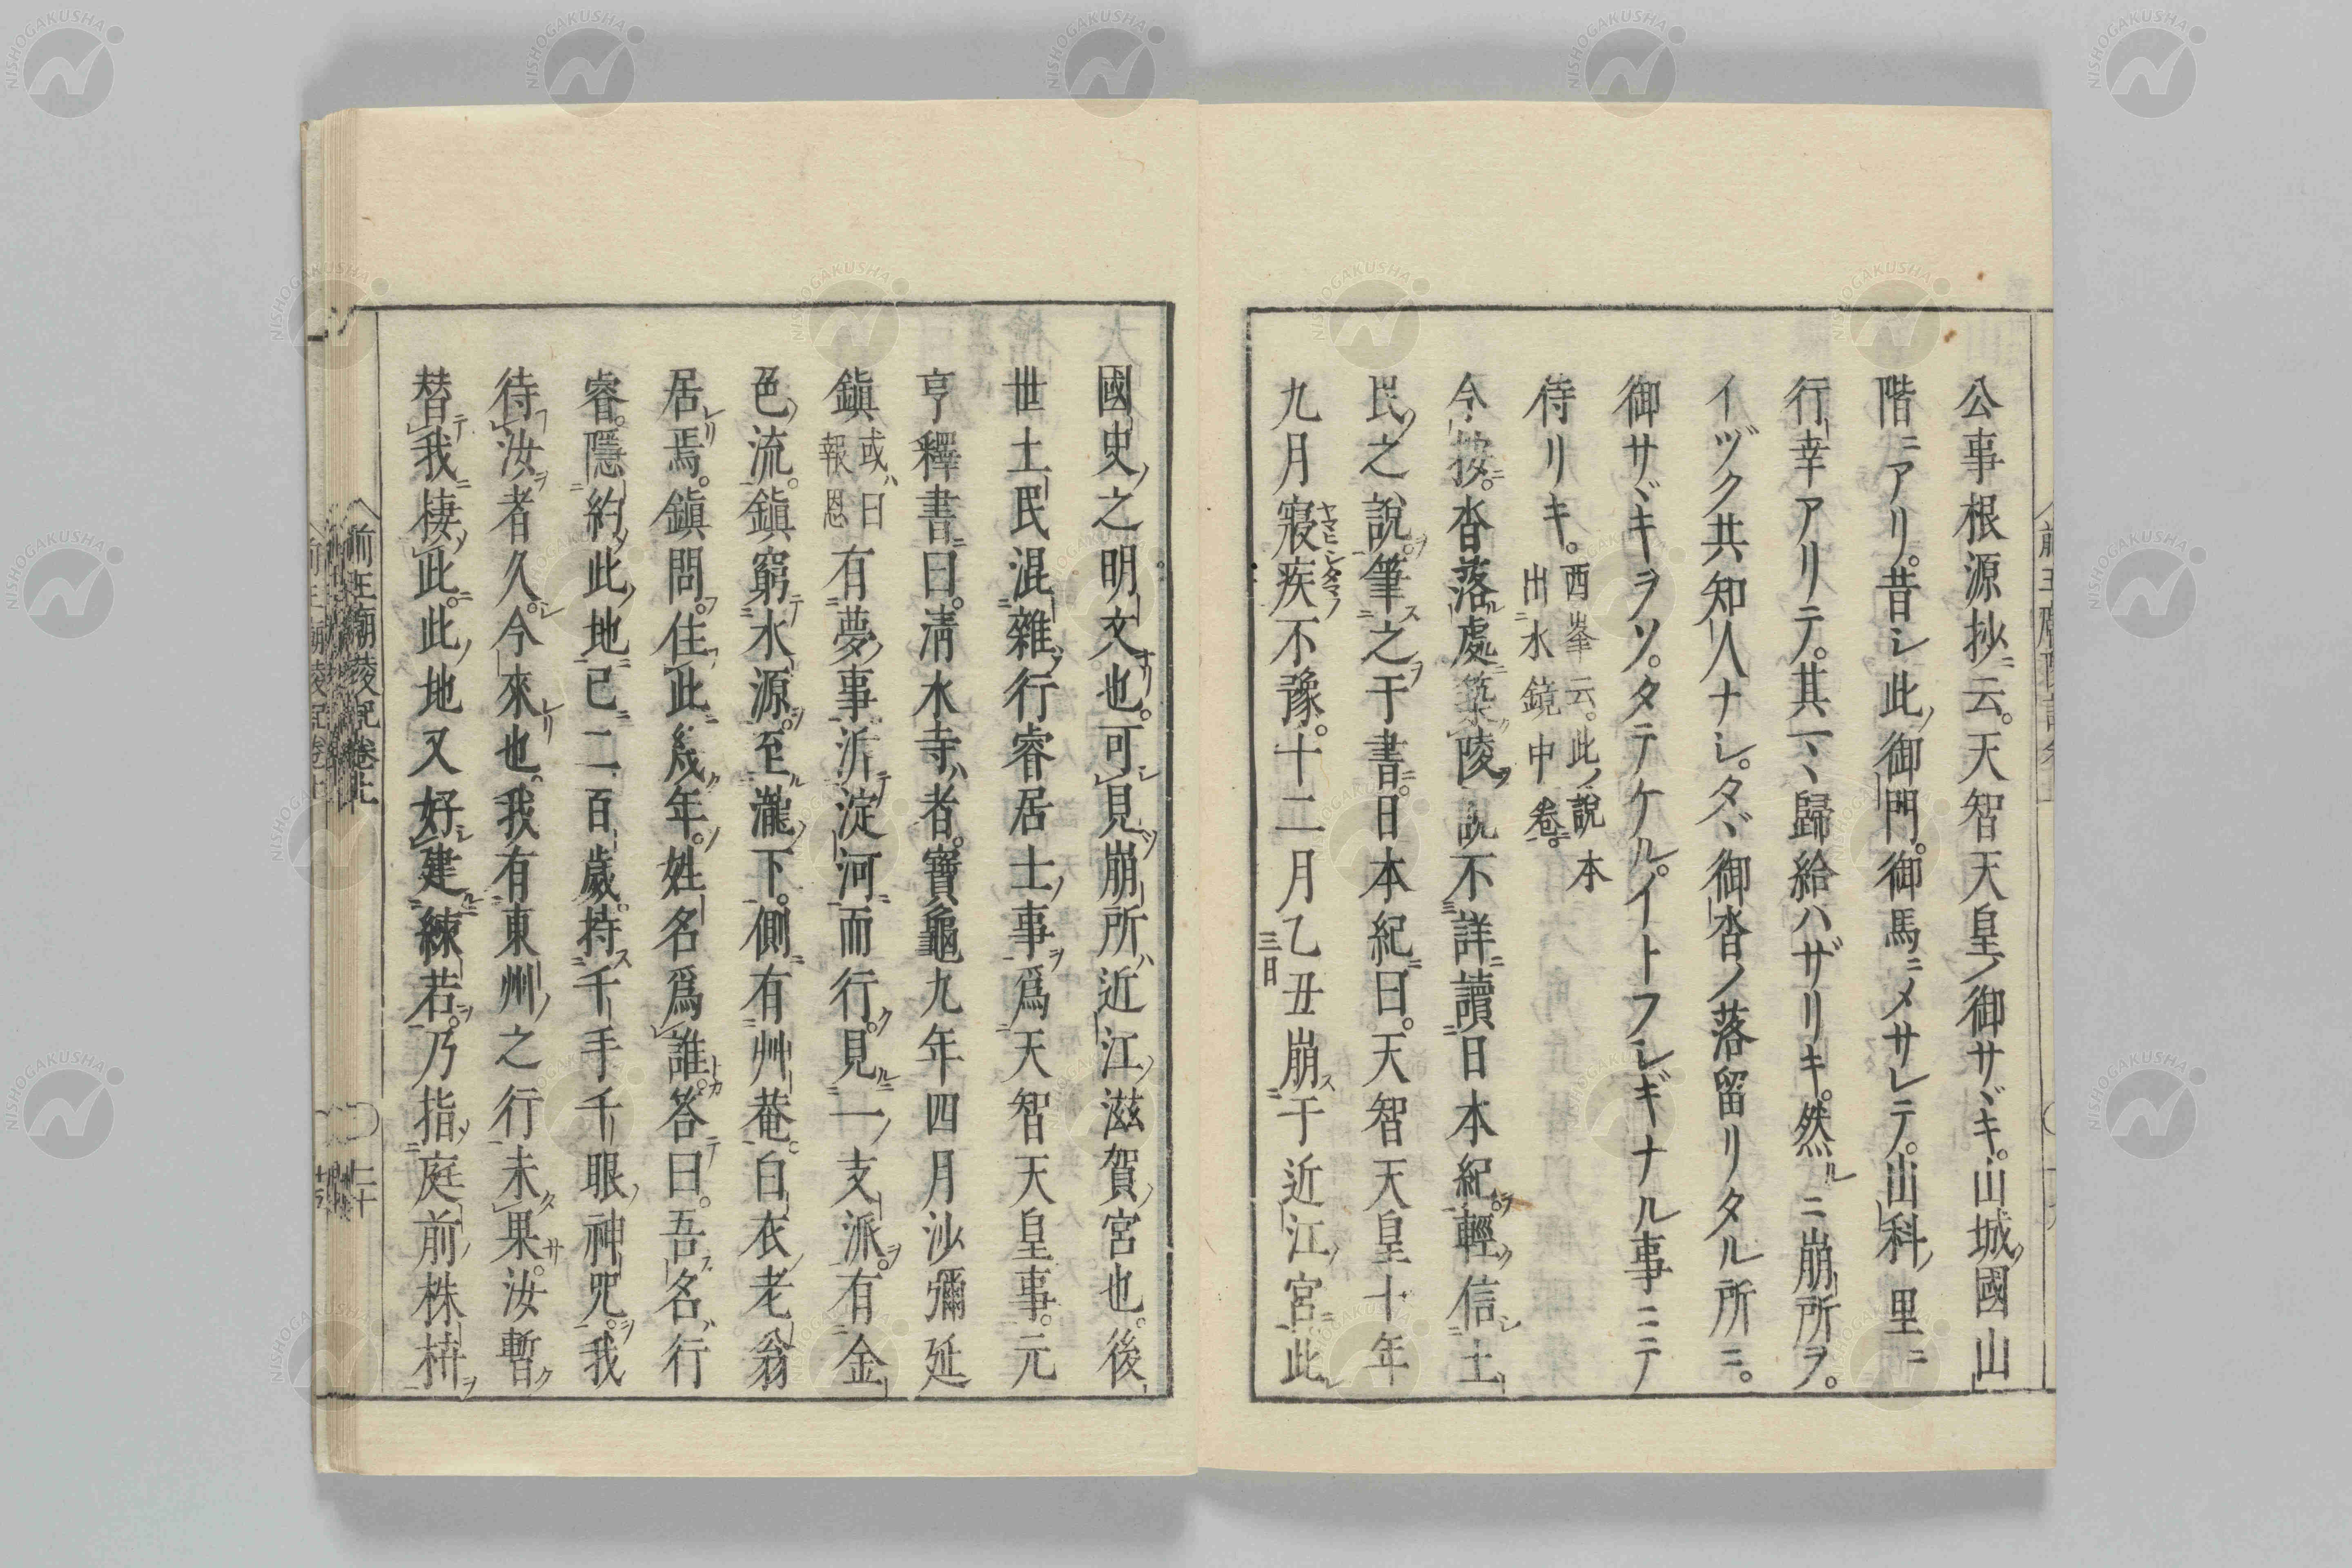 公事根源抄ニ云。天智天皇ノ御サヾキ。山城ノ國山
階ニアリ。昔シ此ノ御門。御馬ニメサレテ。山科ノ里ニ
行幸アリテ。其マヽ歸給ハザリキ。然ルニ崩所ヲ。
イヅク共知人ナシ。タヾ御沓ノ落留リタル所ニ。
御サヾキヲソ。タテケル。イトフシギナル事ニテ
侍リキ。西峯云。此ノ說本
出ニ水鏡中卷。
今按。沓落處築陵說不詳讀日本紀輕信土
民之說。筆之于書。日本紀曰。天智天皇十年
九月寢疾不豫。十二月乙丑崩于近江宮此
ヤマヒシタマフ
三日
國史之明文也。可見崩所近江滋賀宮也。後
世土民混雜行睿居士事爲天智天皇事。元
亨釋書曰。淸水寺者。寶龜九年四月沙彌延
鎭或曰
報恩有夢事泝淀河而行。見一支派。有金
色流。鎭窮水源。至瀧下。側有艸菴。白衣老翁
居焉。鎭問。住此幾年。姓名爲誰。答曰。吾名行
睿。隱約此地已二百歲。持千手千眼神咒。我
待汝者久。今來也。我有東州之行未果。汝暫
替我棲此。此地又好建練若。乃指庭前株枿
前王廟陵記卷上
二十
NISHOGAKUSHA